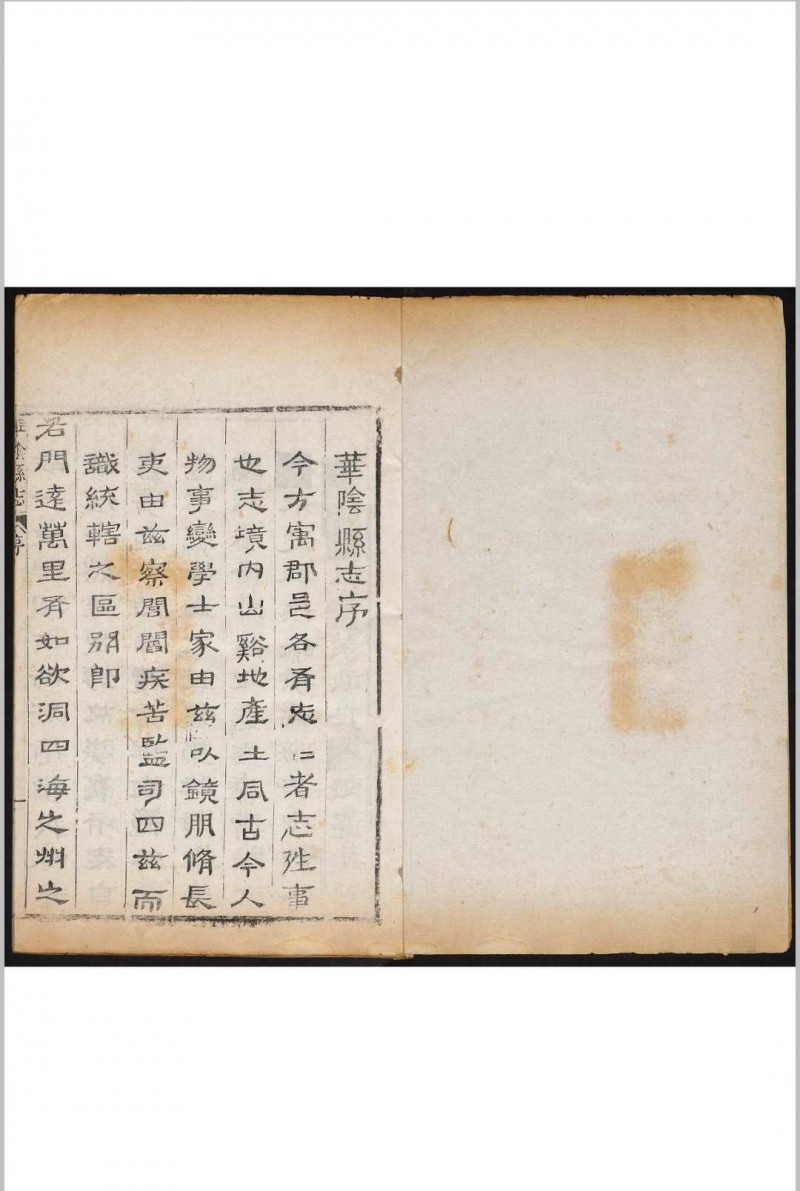 華陰縣志序
今方寓郡邑各有志志者志其事
也志境内山谿地產土風古今人
物事變學士家由茲以鏡明脩長
吏由茲察閭閻疾苦監司由茲而
識統轄之區别即
君門達萬里有如欲洞四海之州之
華陰縣志 序 一